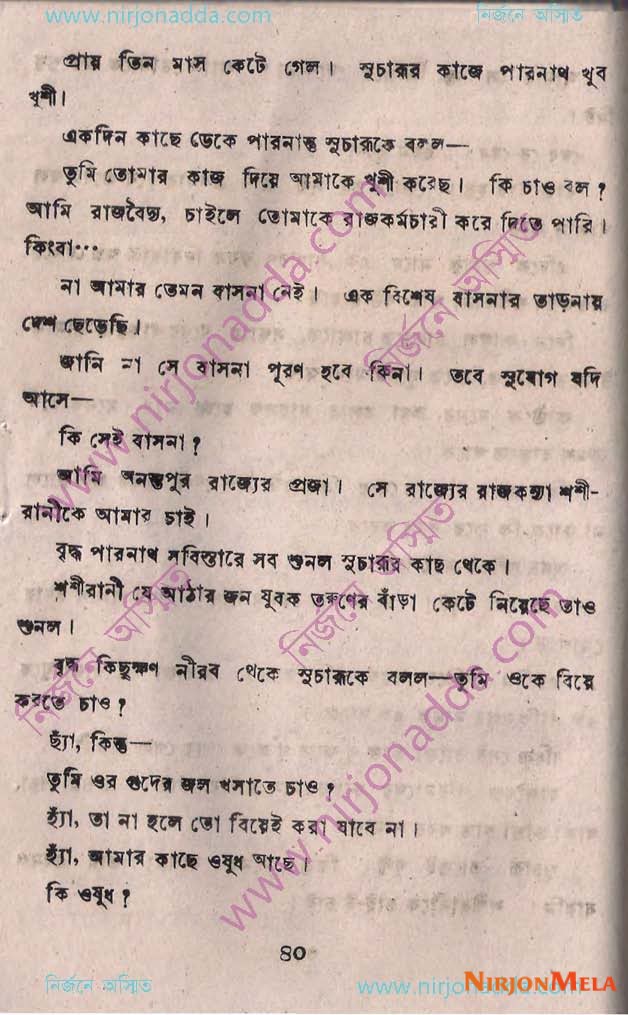 www.nirjonadda.com নির্জনে অস্মিত
প্রায় তিন মাস কেটে গেল। সুচারুর কাজে পারনাথ খুব
খুশী।
একদিন কাছে ডেকে পারনাস্ত সুচারুকে বলল—
তুমি তোমার কাজ দিয়ে আমাকে খুশী করেছ। কি চাও বল?
আমি রাজবৈদ্য, চাইলে তোমাকে রাজকর্মচারী করে দিতে পারি।
কিংবা···
না আমার তেমন বাসনা নেই। এক বিশেষ বাসনার তাড়নায়
দেশ ছেড়েছি।
জানি না সে বাসনা পূরণ হবে কিনা। তবে সুযোগ যদি
আসে—
কি সেই বাসনা?
আমি অনন্তপুর রাজ্যের প্রজা। সে রাজ্যের রাজকন্যা শশী-
রানীকে আমার চাই।
বৃদ্ধ পারনাথ সবিস্তারে সব শুনল সুচারুর কাছ থেকে।
শশীরানী যে আঠার জন যুবক তরুণের বাঁড়া কেটে নিয়েছে তাও
শুনল।
বৃদ্ধ কিছুক্ষণ নীরব থেকে সুচারুকে বলল—তুমি ওকে বিয়ে
করতে চাও?
হ্যাঁ, কিন্তু—
তুমি ওর গুদের জল খসাতে চাও?
হ্যাঁ, তা না হলে তো বিয়েই করা যাবে না।
হ্যাঁ, আমার কাছে ওষুধ আছে।
কি ওষুধ?
৪০
নির্জনে অস্মিত www.nirjonadda.com
NIRJONMELA
www.nirjonadda.com নির্জনে অস্মিত
নির্জনে অস্মিত নির্জনে অস্মিত
www.nirjonadda.com